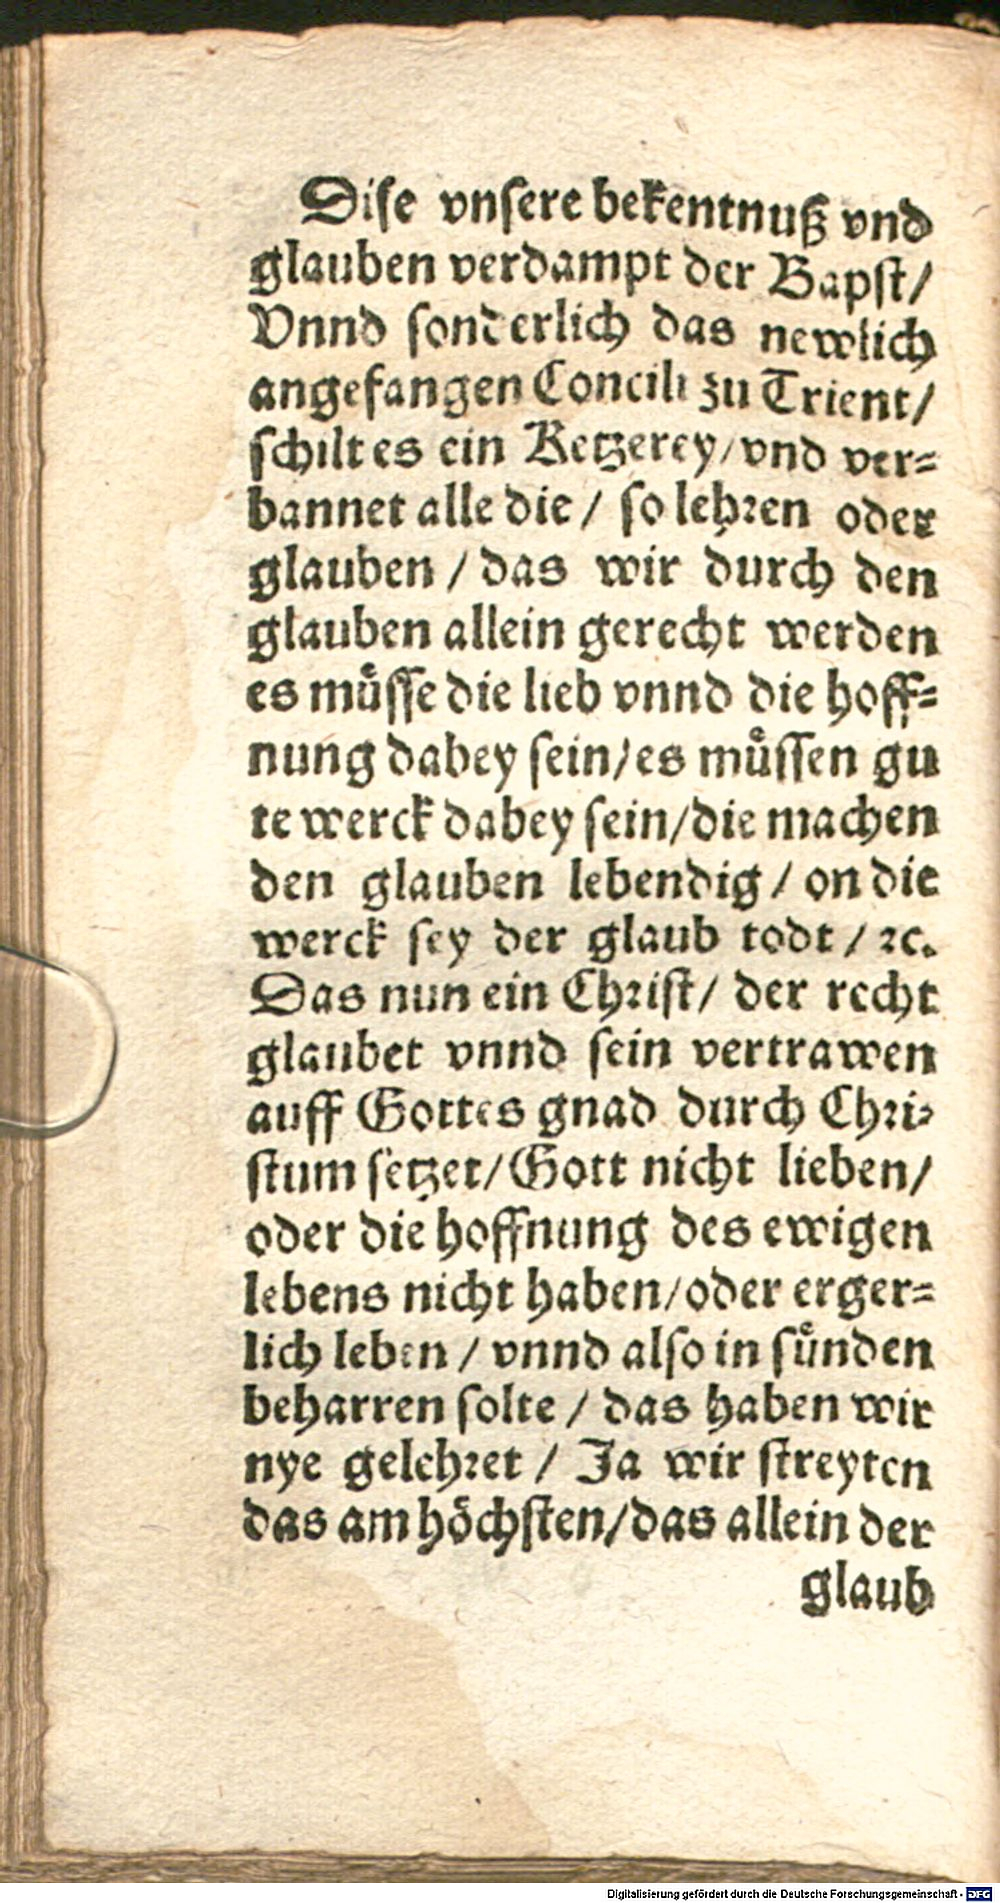 Dise vnsere bekentnuß vnd
glauben verdampt der Bapst/
Vnnd sonderlich das newlich
angefangen Concili zu Trient/
schilt es ein Ketzerey/vnd ver=
bannet alle die / so lehren oder
glauben / das wir durch den
glauben allein gerecht werden
es müsse die lieb vnnd die hoff=
nung dabey sein/es müssen gu
te werck dabey sein/die machen
den glauben lebendig / on die
werck sey der glaub todt / ꝛc.
Das nun ein Christ/ der recht
glaubet vnnd sein vertrawen
auff Gottes gnad durch Chri=
stum setzet/Gott nicht lieben/
oder die hoffnung des ewigen
lebens nicht haben/oder erger=
lich leben / vnnd also in sünden
beharren solte / das haben wir
nye gelehret / Ja wir streyten
das am höchsten/das allein der
glaub
Digitalisierung gefördert durch die Deutsche Forschungsgemeinschaft - DFG